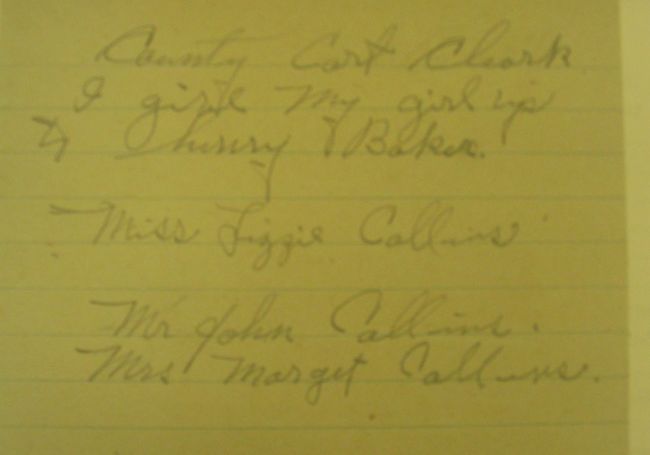 County Cort Clerk
I give my girl up
to Henry Baker.
Miss Lizzie Collins
Mr John Collins.
Mrs Marget Collins.